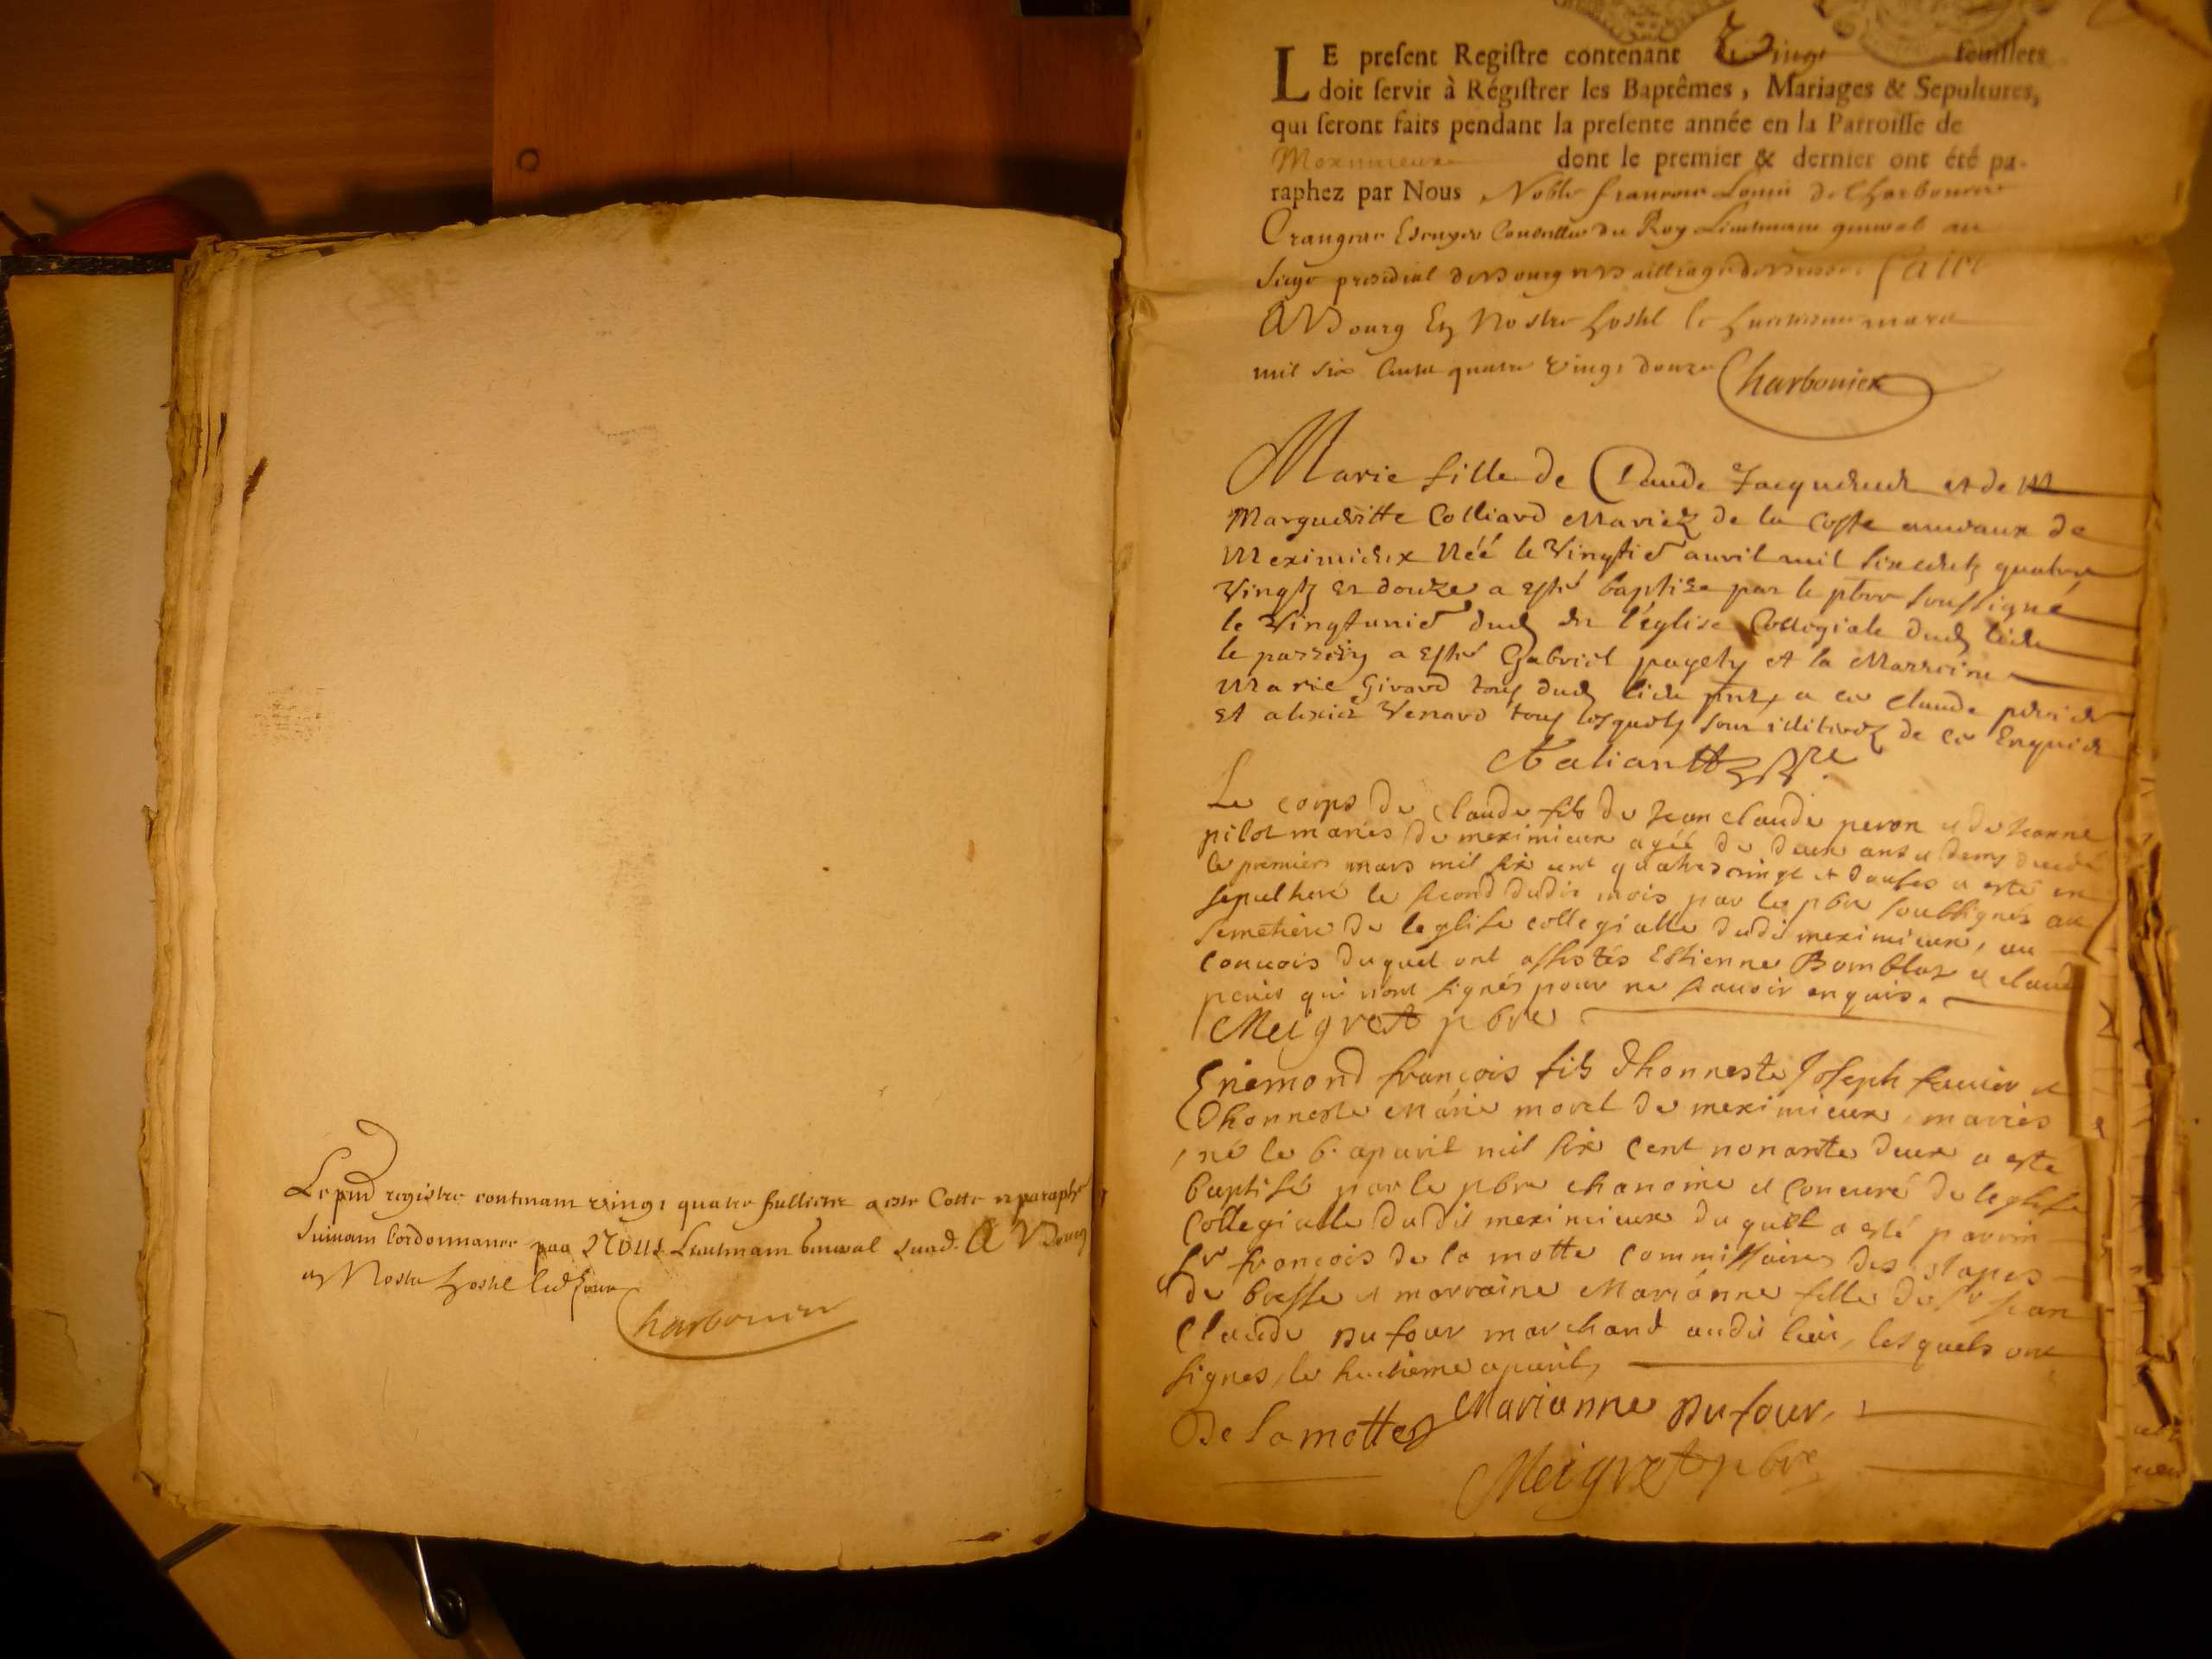 Le pnt registre contenant vingt quatre feullietz a esté Cotté et paraphé
suivant l'ordonnance par Nous Lieutenant general susd. A Bourg
en Nostre hostel led jour
Charbonier
LE present Registre contenant Vingt feuillets
doit servir à Régistrer les Baptêmes, Mariages & Sepultures,
qui seront faits pendant la presente année en la Parroisse de
Meximieux dont le premier & dernier ont été pa-
raphez par Nous Noble francois Louis de Charbonnier
Crangeac Escuyer Conseiller du Roy Lieutenant general au
siege presidial de Bourg et Bailliage de Bresse Faict
A Bourg En Nostre hostel le mars
mil six Cents quatre vingt douze Charbonier
Marie fille de Claude Jacquemet et de M
Margueritte Colliard Mariez de la Coste de
Meximieux Néé le Vingtie auvril mil six cents quatre
Vingtz et douze a esté baptize par le pbre soussigné
le Vingtunie dud en l'église Collegiale dud lieu
le parrein a esté Gabriel pagety et la Marreine
Marie Girard tous dud lieu pntz a ce Claude perier
et alexis Venard tous lesquels sont illiterez de ce Enquis
pbre
Le corps de Claude fils de Jean Claude peron et de Jeanne
pilot mariés de meximieux agéé de deux ans et demy decedé
le premiers mars mil six cent quatre vingt et douses a esté en
sepulheré le second dudit mois par le pbre soubsignés au
semetiere de leglise collegialle dudit meximieux, au
convois duquel ont assistés Estienne Bomblat et claude
perier qui nont signés pour ne scavoir enquis.
Meigret pbre
Enemond francois fils dhonneste Joseph favier et
dhonneste Marie morel de meximieux mariés
né le 6. apvril mil six cent nonante deux a esté
baptisé par le pbre chanoine et concuré de leglise
Collegialle dudit meximieux duquel a esté parrin
sr francois de la motte commissaire des etapes
de bresse et marraine Marianne fille de sr Jean
Claude Dufour marchand audit lieu, lesquels ont
signes, le huitieme apvril,
De Lamotte Marianne Dufour,
Meigret pbre